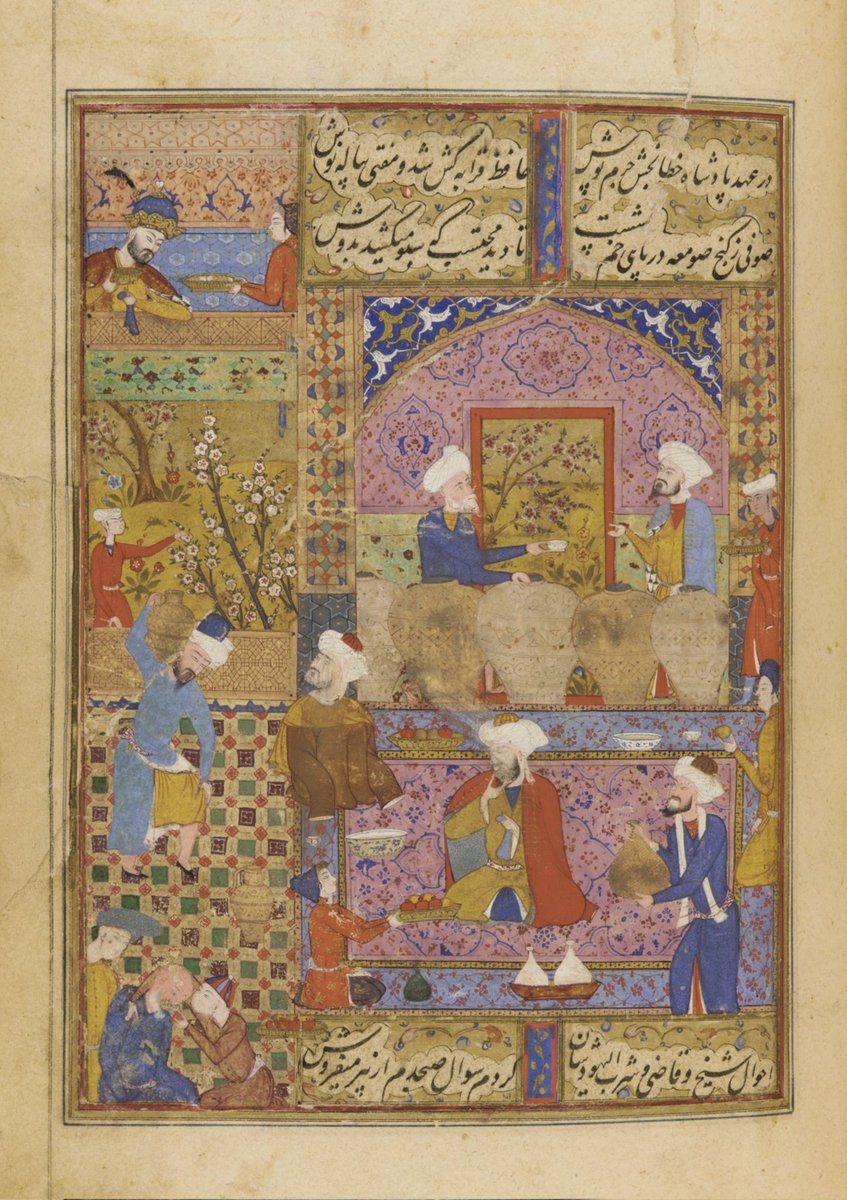 در عهد پادشاه خطابخش جرم پوش حافظ قرابه کش شد و مفتی پیاله نوش
صوفی ز کنج صومعه در پای خم نشست تا دید محتسب که سبو میکشید بدوش
احوال شیخ و قاضی و شرب الیهودشان کردم سوال صبحدم از پیر میفروش